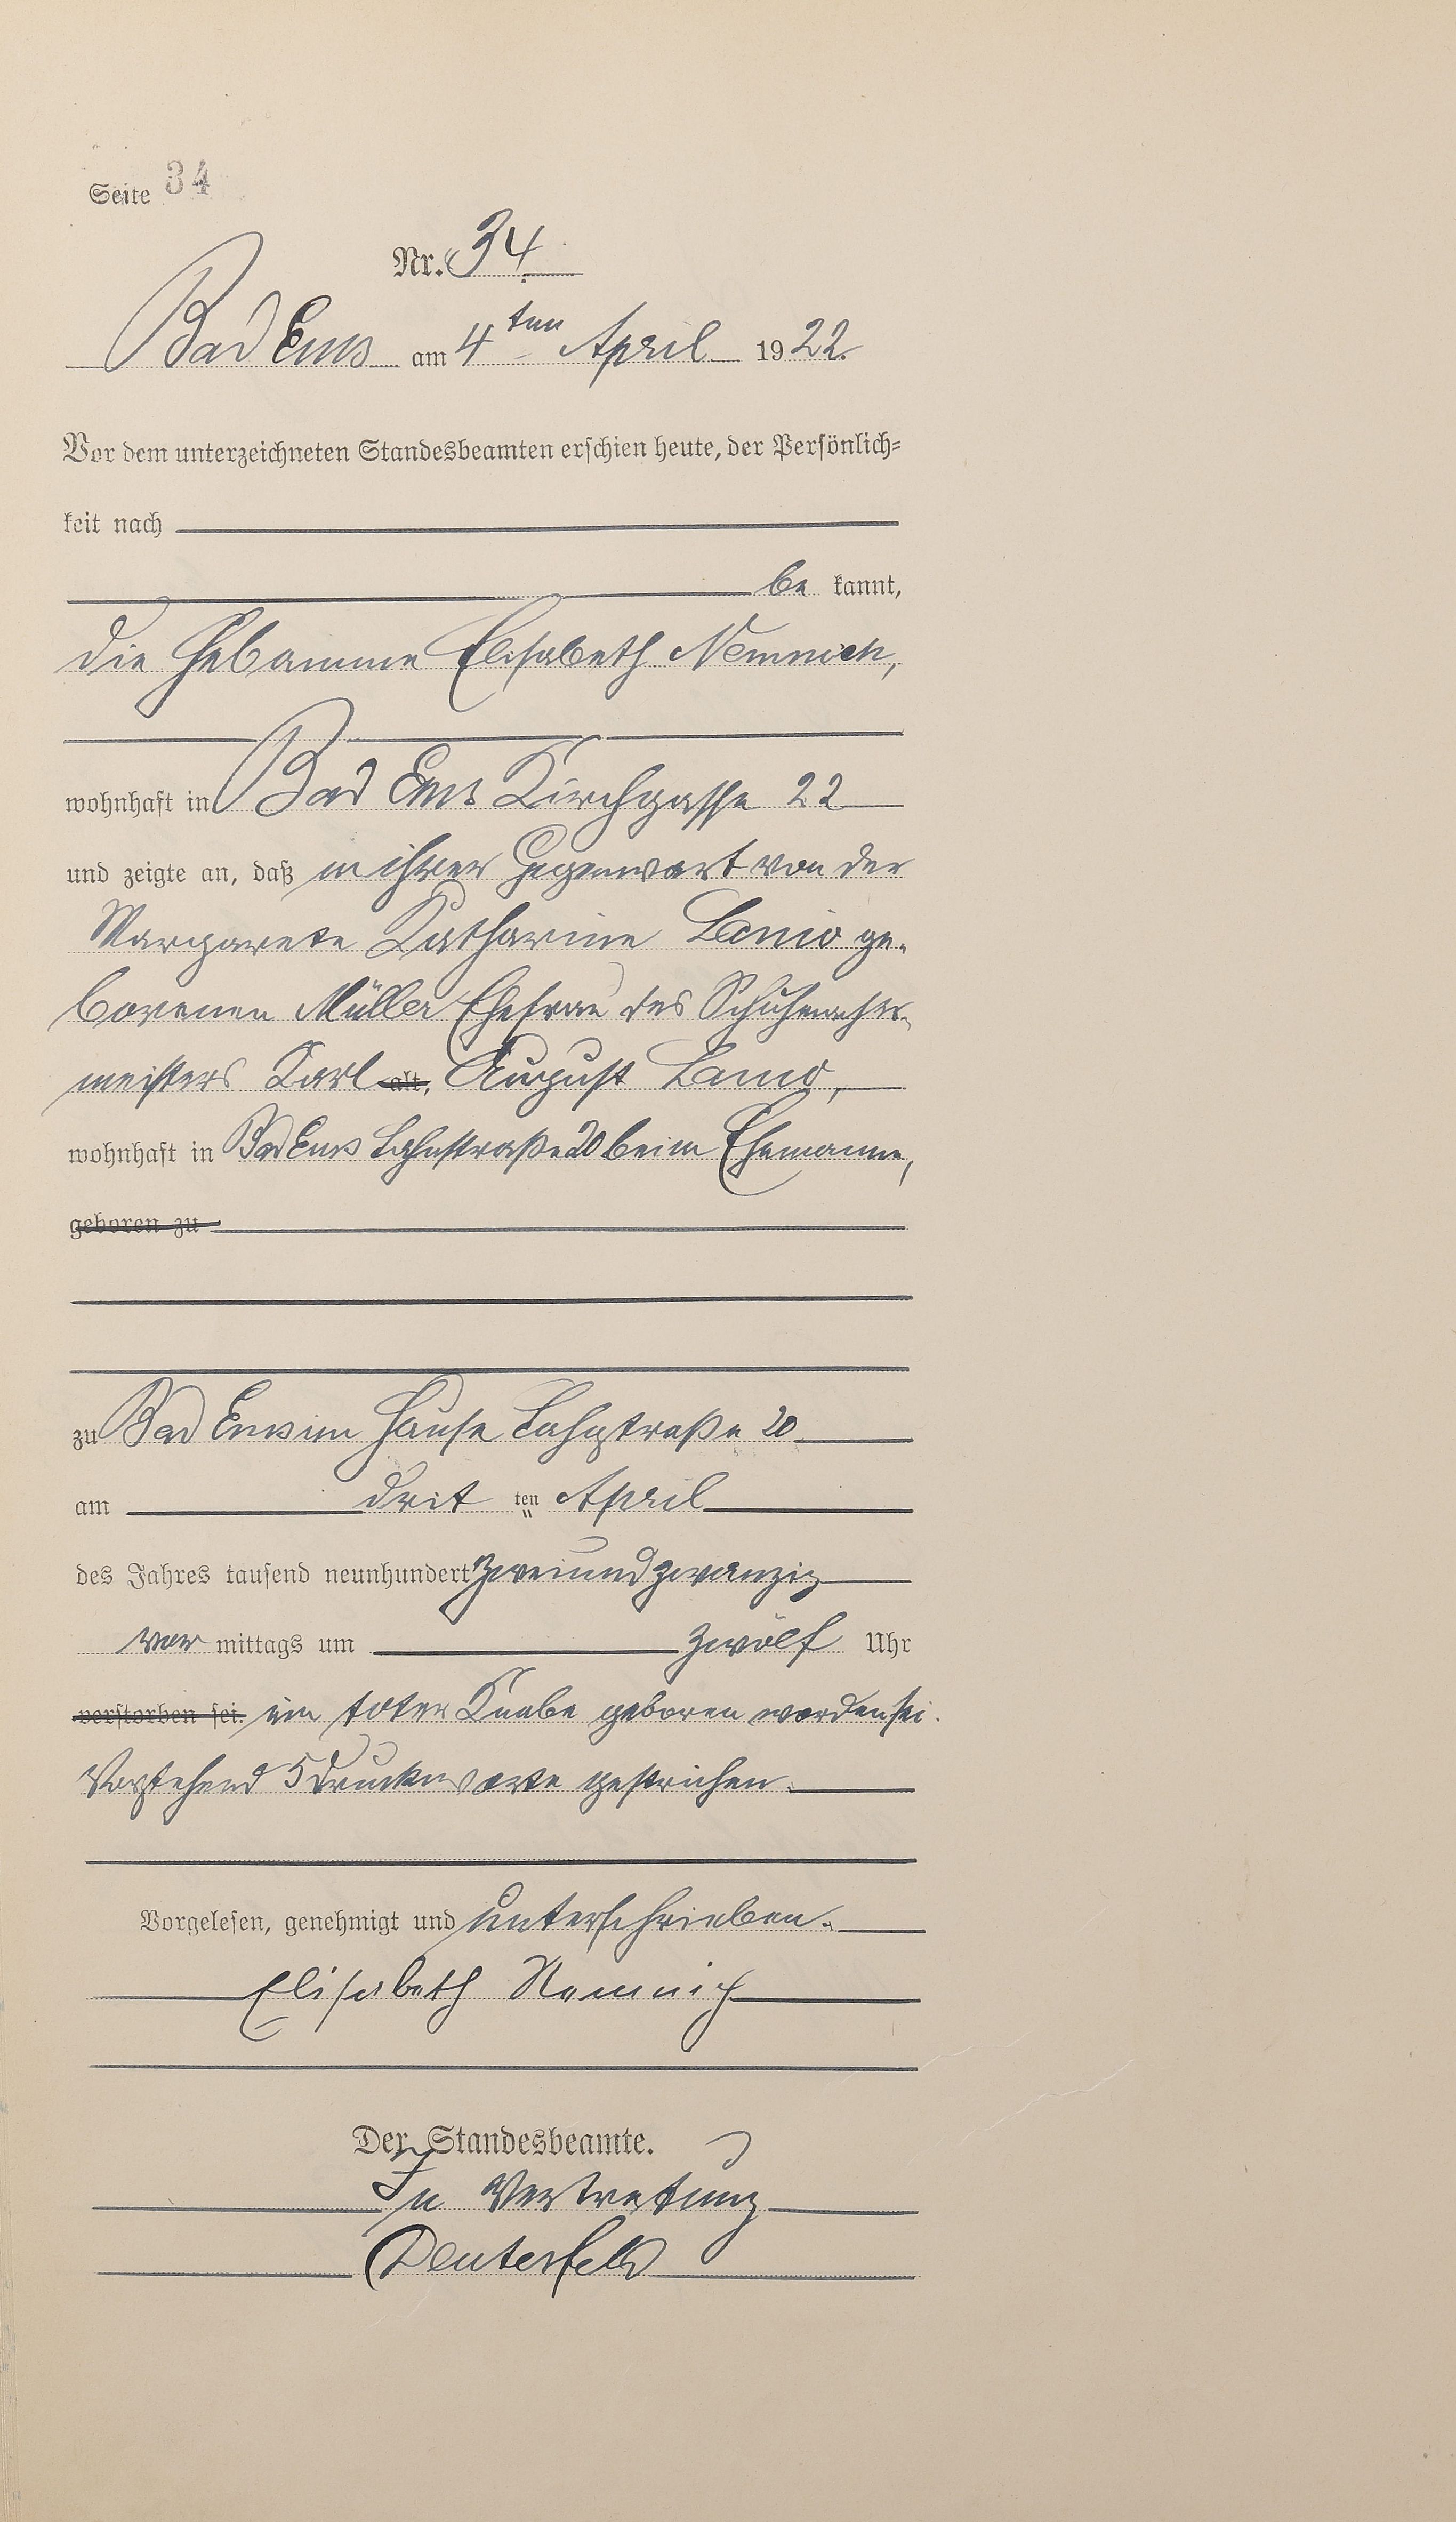 Seite 34
Nr. 34.
Bad Ems am 4ten April 1922.
Vor dem unterzeichneten Standesbeamten erschien heute, der Persönlich-
keit nach
be kannt,
die Hebamme Elisabeth Nemnich,
wohnhaft in Bad Ems Kirchgasse 22
und zeigte an, daß in ihrer Gegenwart von der
Margarete Katharine Lanio ge-
borenen Müller Ehefrau des Schuhmacher-
meisters Karl alt, August Lanio,
wohnhaft in Bad Ems Lahnstraße 20 beim Ehemanne,
geboren zu
zu Bad Ems im Hause Lahnstraße 20
am drit ten April
des Jahres tausend neunhundert zweiundzwanzig
vor mittags um zwölf Uhr
verstorben sei. ein toter Knabe geboren worden sei.
Vorstehend 5 Druckworte gestrichen.
Vorgelesen, genehmigt und unterschrieben.
Elisabeth Nemnich
Der Standesbeamte.
In Vertretung